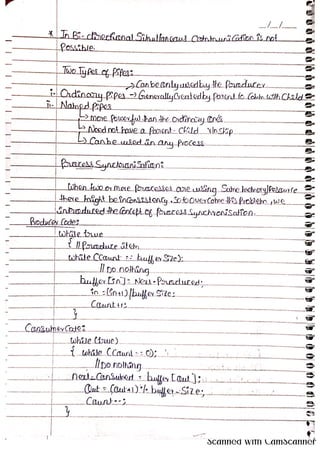 __/__/__
* In Bi-directional Simultaneous Communication is not
Possible.
Two Types of Pipes:
→ Can be only used by the Producer
i- Ordinary Pipes → Generally Created by Parent to Comm with Child
ii- Named Pipes
↳ more Powerful than the Ordinary ones
↳ Need not have a Parent-Child r/nship
↳ Can be used in any Process
Process Synchronisation:
When two or more Processes are using Same memory/Resource
there might be inconsistency. So to overcome this Problem, we
introduced the Concept of Process Synchronisation.
Producer Code:
While true
{ // Produce item
while (Count == buffer Size);
// Do nothing
buffer [in] = Next-Produced;
in = (in+1) / buffer Size;
Count++;
}
Consumer Code:
while (true)
{ while (Count == 0);
// Do nothing
next_Consumed = buffer [out];
Out = (out+1) % buffer-Size;
Count--;
}
Scanned with CamScanner